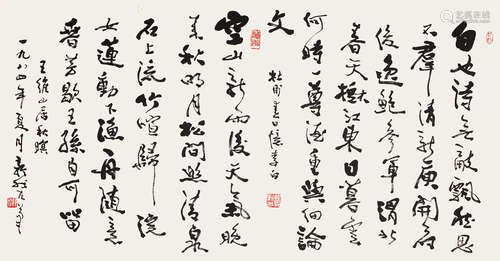 白也詩無敵飄然思
不群清新庾開府
俊逸鮑參軍渭北
春天樹江東日暮雲
何時一尊酒重與細論
文
杜甫春日憶李白
空山新雨後天氣晚
來秋明月松間照清泉
石上流竹喧歸浣
女蓮動下漁舟隨意
春芳歇王孫自可留
王維山居秋暝
一九八四年夏月